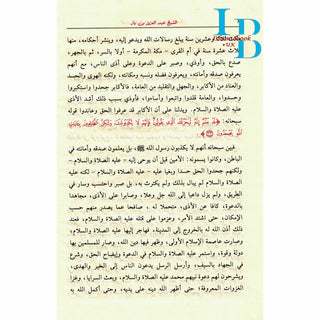 الشيخ عبد العزيز بن باز
LB
UK
وعشرين سنة يبلغ رسالات الله ويدعو إليه، وينشر أحكامه، منها
ثلاث عشرة سنة في أم القرى - مكة المكرمة - أولا بالسر، ثم بالجهر،
صدع بالحق، وأوذي، وصبر على الدعوة وعلى أذى الناس، مع أنهم
يعرفون صدقه وأمانته، ويعرفون فضله ونسبه ومكانته، ولكنه الهوى والحسد
والعناد من الأكابر، والجهل والتقليد من العامة، فالأكابر جحدوا واستكبروا
وحسدوا، والعامة قلدوا واتبعوا وأساءوا، فأوذي بسبب ذلك أشد الأذى
عليه الصلاة والسلام. ويدلنا على أن الأكابر قد عرفوا الحق وعاندوا قوله
سبحانه: ﴿قد نعلم إنه ليحزنك الذي يقولون فإنهم لا يكذبونك ولكن الظالمين بآيات
الله يجحدون﴾
فبين سبحانه أنهم لا يكذبون رسول الله ﷺ، بل يعلمون صدقه وأمانته في
الباطن، وكانوا يسمونه: الأمين قبل أن يوحى إليه - عليه الصلاة والسلام -
ولكنهم جحدوا الحق حسدا وبغيا عليه - عليه الصلاة والسلام - لكنه عليه
الصلاة والسلام لم يبال بذلك ولم يكترث به، بل صبر واحتسب وسار في
الطريق، ولم يزل داعيا إلى الله جل وعلا، وصابرا على الأذى، مجاهدا
بالدعوة، كافا عن الأذى، متحملا له، صافحا عما يصدر منهم حسب
الإمكان، حتى اشتد الأمر، وعزموا على قتله عليه الصلاة والسلام، فعند
ذلك أذن الله له بالخروج إلى المدينة، فهاجر إليها عليه الصلاة والسلام،
وصارت عاصمة الإسلام الأولى، وظهر فيها دين الله، وصار للمسلمين بها
دولة وقوة، واستمر عليه الصلاة والسلام في الدعوة وإيضاح الحق، وشرع
في الجهاد بالسيف، وأرسل الرسل يدعون الناس إلى الخير والهدى،
ويشرحون لهم دعوة نبيهم محمد عليه الصلاة والسلام، وبعث السرايا، وغزا
الغزوات المعروفة؛ حتى أظهر الله دينه على يديه، وحتى أكمل الله به